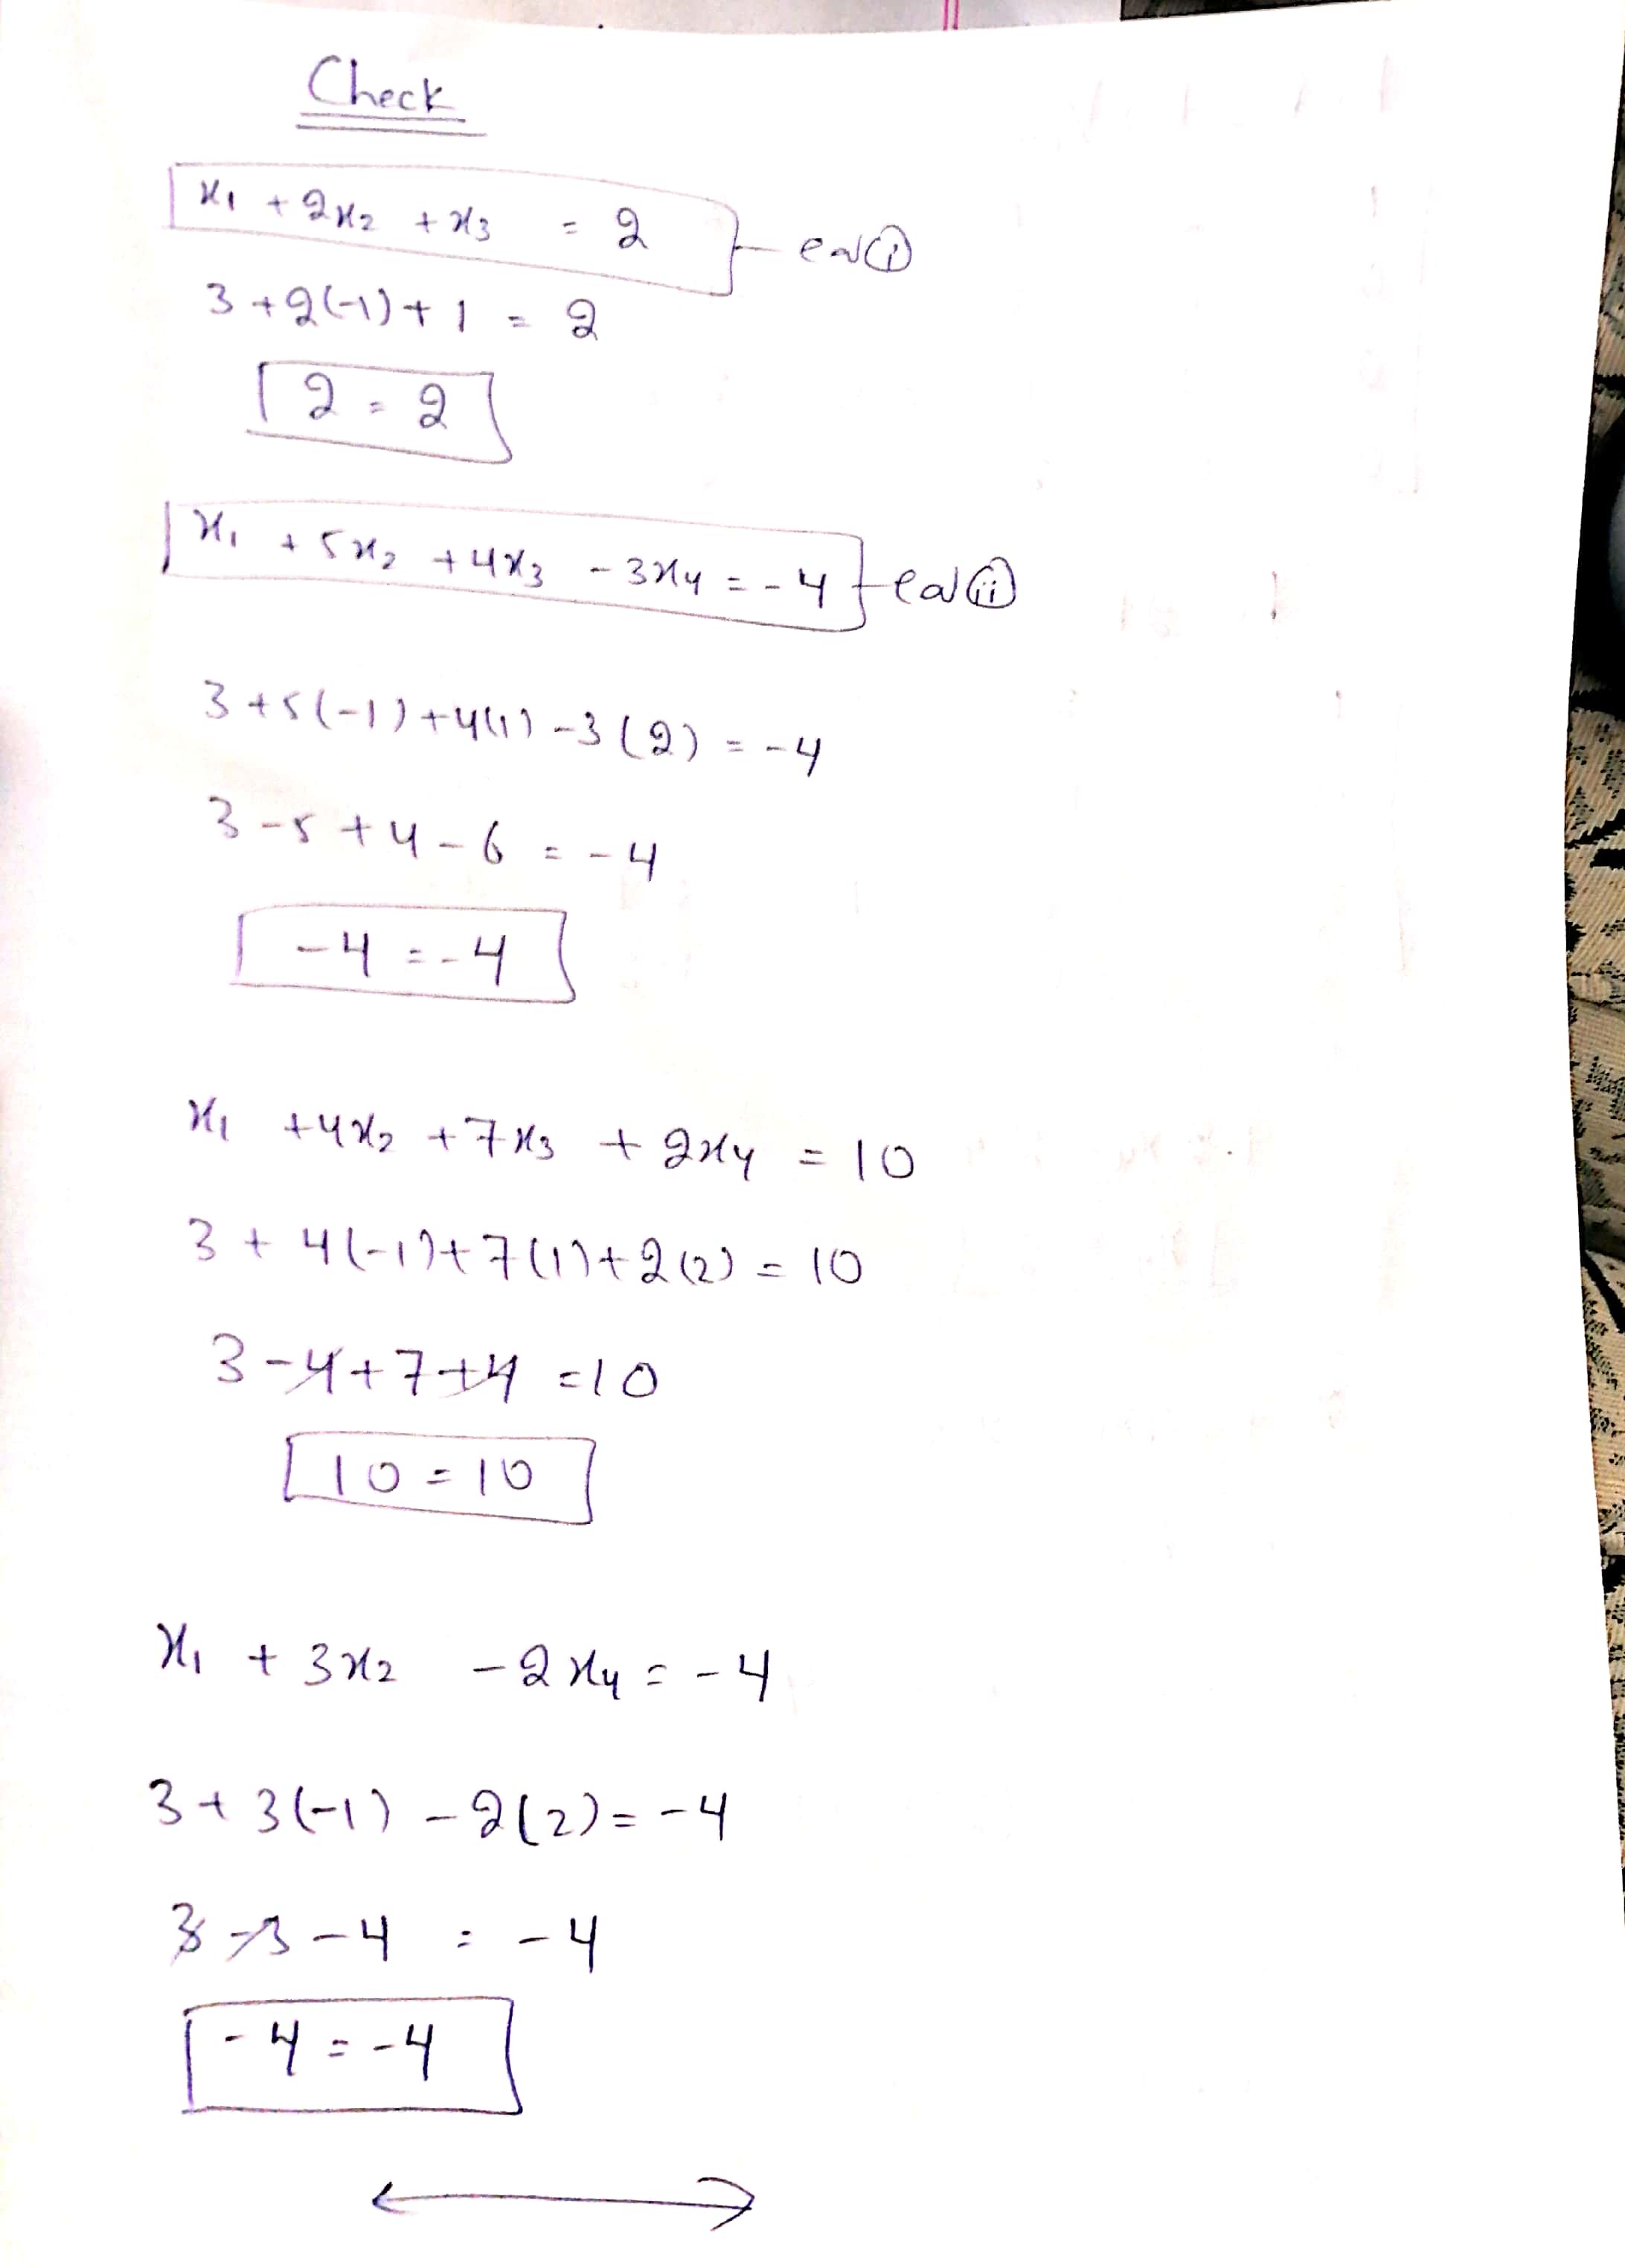 Check
x₁ + 2x₂ + x₃ = 2 eq (i)
3 + 2(-1) + 1 = 2
2 = 2
x₁ + 5x₂ + 4x₃ - 3x₄ = -4 eq (ii)
3 + 5(-1) + 4(1) - 3(2) = -4
3 - 5 + 4 - 6 = -4
-4 = -4
x₁ + 4x₂ + 7x₃ + 2x₄ = 10
3 + 4(-1) + 7(1) + 2(2) = 10
3 - 4 + 7 + 4 = 10
10 = 10
x₁ + 3x₂ - 2x₄ = -4
3 + 3(-1) - 2(2) = -4
3 - 3 - 4 = -4
-4 = -4